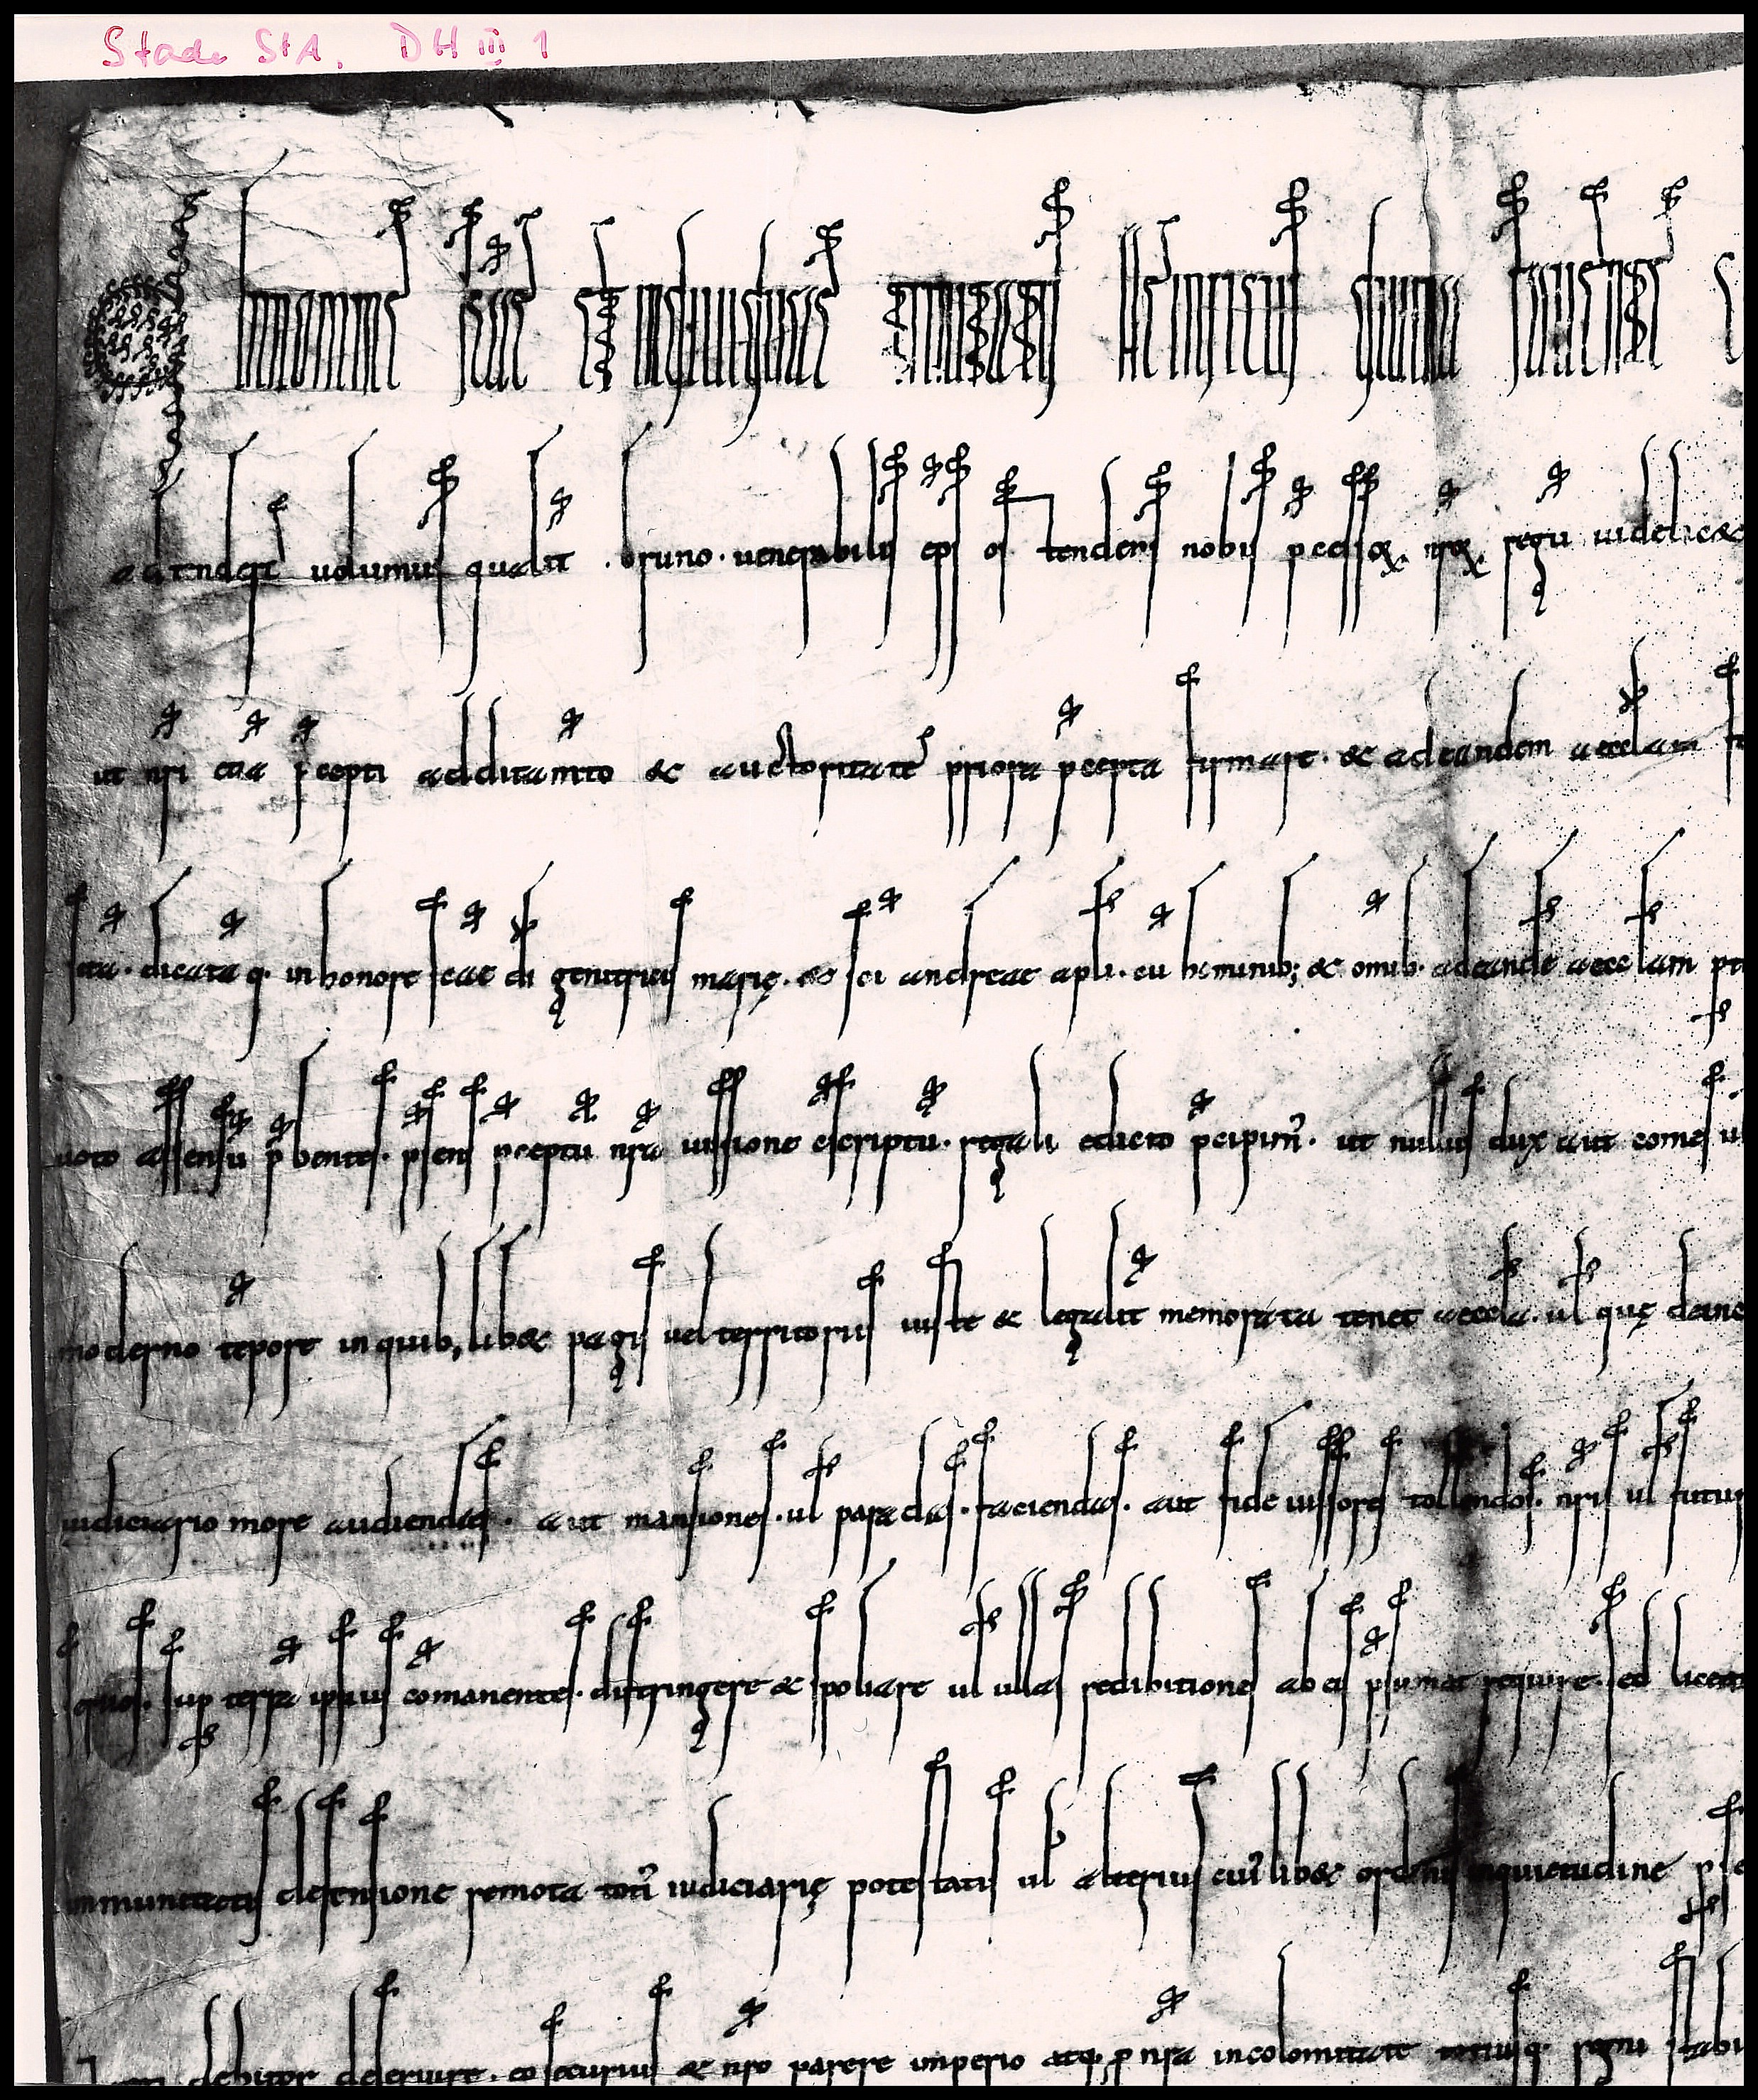 Stade StA. DH III 1
In nomine scae et individuae trinitatis Heinricus divina favente
attendat volumus qualit bruno venerabilis eps ostendens nobis pceptū nrorū regū videlicet
ut nri etiā pcepti additamto & auctoritate priora pcepta firmare. & ad eandem aecclam
sita. dicataq. in honore scae di genitricis marię. & sci andreae apli. cū hominib; & omib. ad eande aecclam
voto assensū pbentes. psens pceptū nra iussione cscriptū. regali edicto pcipim. ut nullus dux aut comes
moderno tepore in quib; libet pagis vel territoriis iuste & legalit memorata tenet aeccla. ul quę deinc
iudiciario more audiendas. aut mansiones. ul paradas. faciendas. aut fideiussores tollendos. nris ul futur
sup terra ipsius comanentes. distringere & spoliare ul ullas redibitiones ab eis psumat requirere. sed liceat
immunitatis defensione remota toti iudiciarię potestatis ul alterius cui libet ordinis inquietudine
debitor deservire. & nro parere imperio atq; p nra incolomitate totiusq. regni stabi